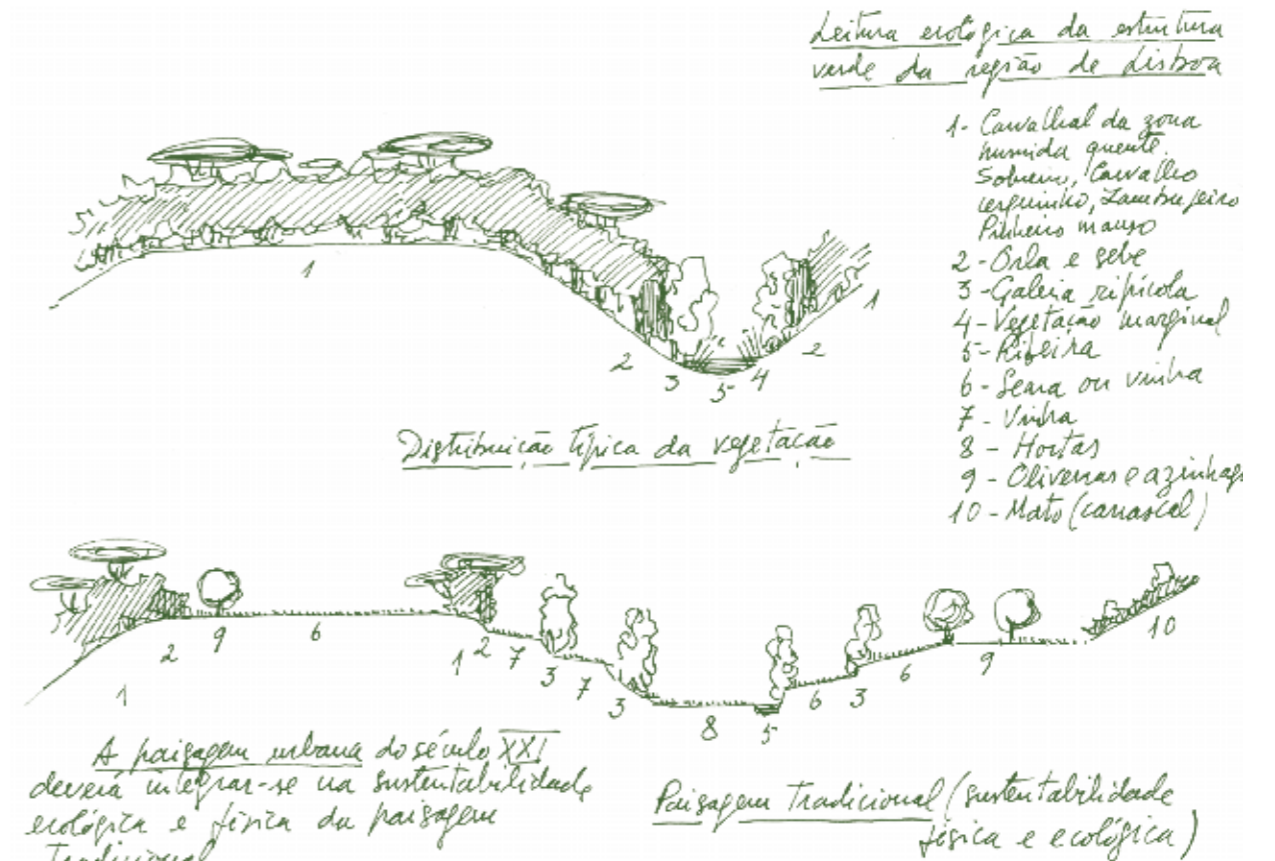 Leitura ecológica da estrutura
verde da região de Lisboa
1- Carvalhal da zona
humida quente.
Sobreiro, Carvalho
cerquinho, Zambujeiro
Pinheiro manso
2 - Orla e sebe
3 - Galeria ripícola
4 - Vegetação marginal
5 - Ribeira
6 - Seara ou vinha
7 - Vinha
8 - Hortas
9 - Oliveiras e azinhagas
10 - Mato (carrascal)
1
2
3
5
4
2
1
Distribuição típica da vegetação
1
2
9
6
1
2
7
3
7
3
8
5
6
3
6
9
10
A paisagem urbana do século XXI
deverá integrar-se na sustentabilidade
ecológica e física da paisagem
tradicional
Paisagem Tradicional (sustentabilidade
física e ecológica)